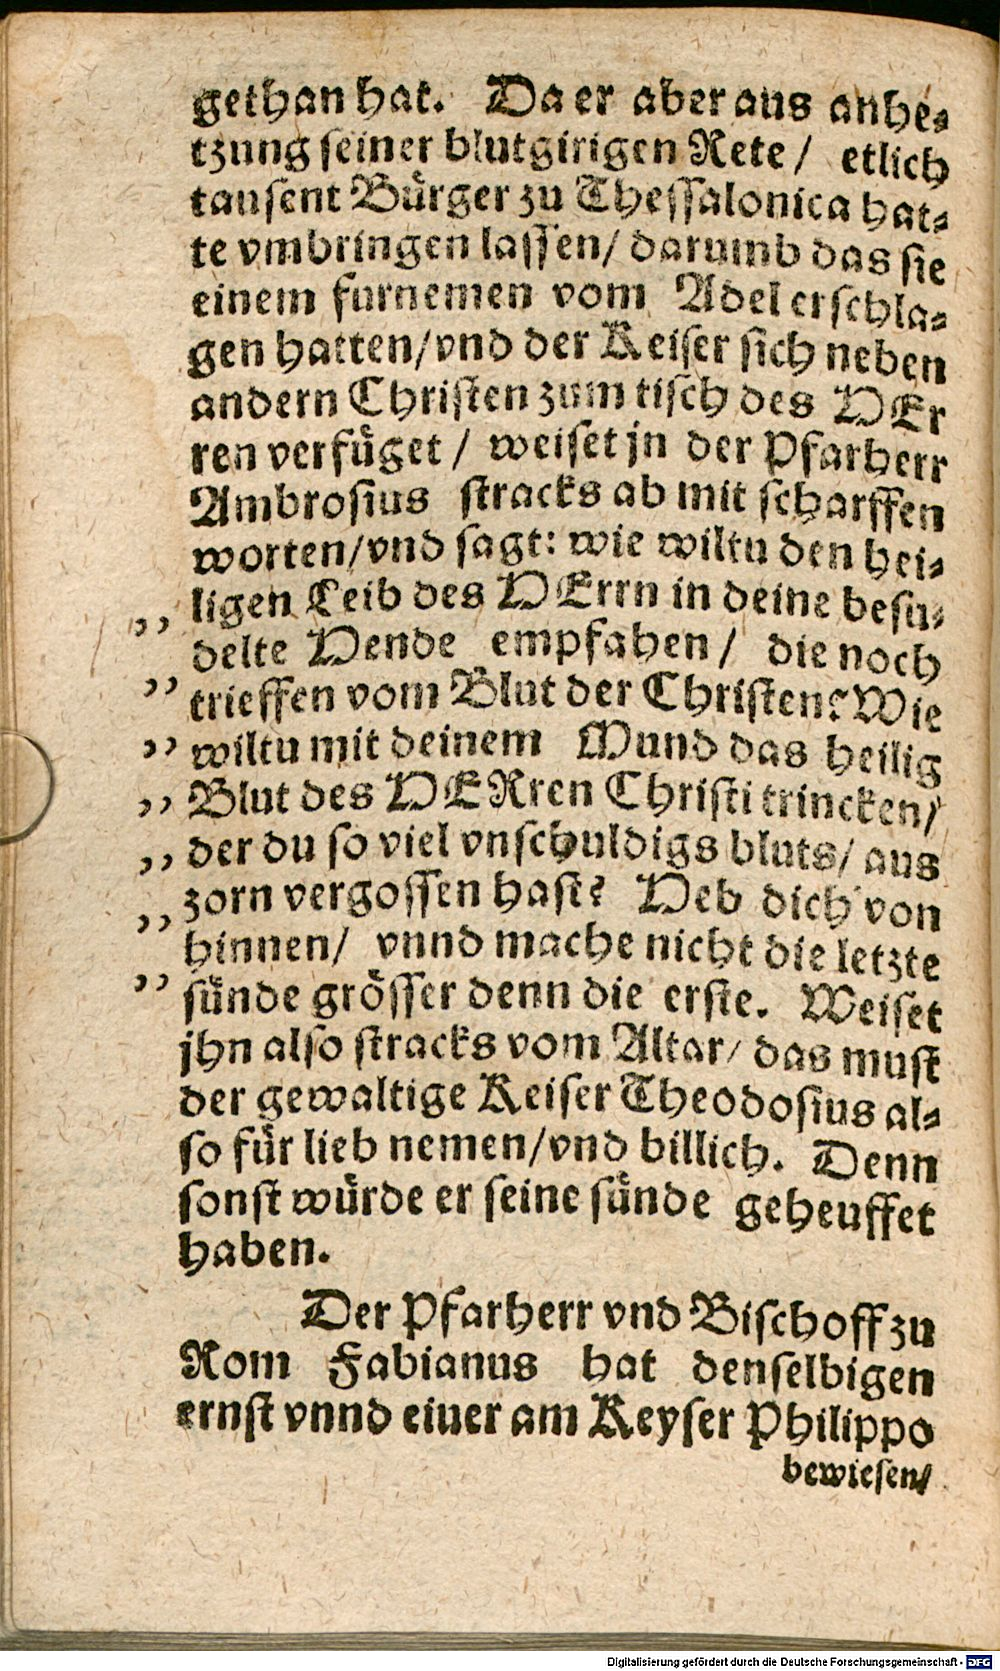 gethan hat. Da er aber aus anhe⸗
tzung seiner blutgirigen Rete / etlich
tausent Bürger zu Thessalonica hat⸗
te vmbringen lassen / darumb das sie
einem furnemen vom Adel erschla⸗
gen hatten / vnd der Keiser sich neben
andern Christen zum tisch des HEr
ren verfüget / weiset jn der Pfarherr
Ambrosius stracks ab mit scharffen
worten / vnd sagt: wie wiltu den hei⸗
„ ligen Leib des HErrn in deine besu⸗
delte Hende empfahen / die noch
„ trieffen vom Blut der Christen? Wie
„ wiltu mit deinem Mund das heilig
„ Blut des HERren Christi trincken /
„ der du so viel vnschuldigs bluts / aus
„ zorn vergossen hast? Heb dich von
hinnen / vnnd mache nicht die letzte
„ sünde grösser denn die erste. Weiset
jhn also stracks vom Altar / das must
der gewaltige Keiser Theodosius al⸗
so für lieb nemen / vnd billich. Denn
sonst würde er seine sünde geheuffet
haben.
Der Pfarherr vnd Bischoff zu
Rom Fabianus hat denselbigen
ernst vnnd eiuer am Keyser Philippo
bewiesen /
Digitalisierung gefördert durch die Deutsche Forschungsgemeinschaft - DFG